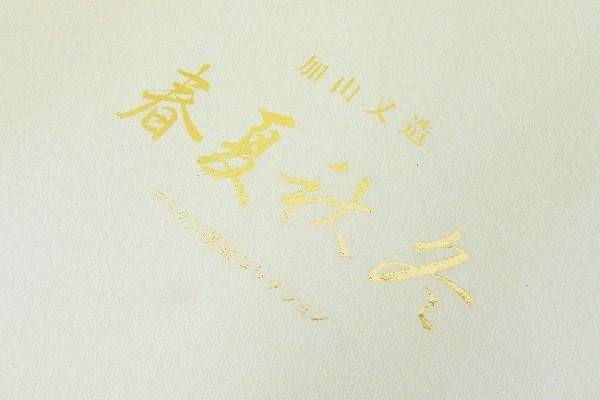 加山又造
春夏秋冬
コレクション